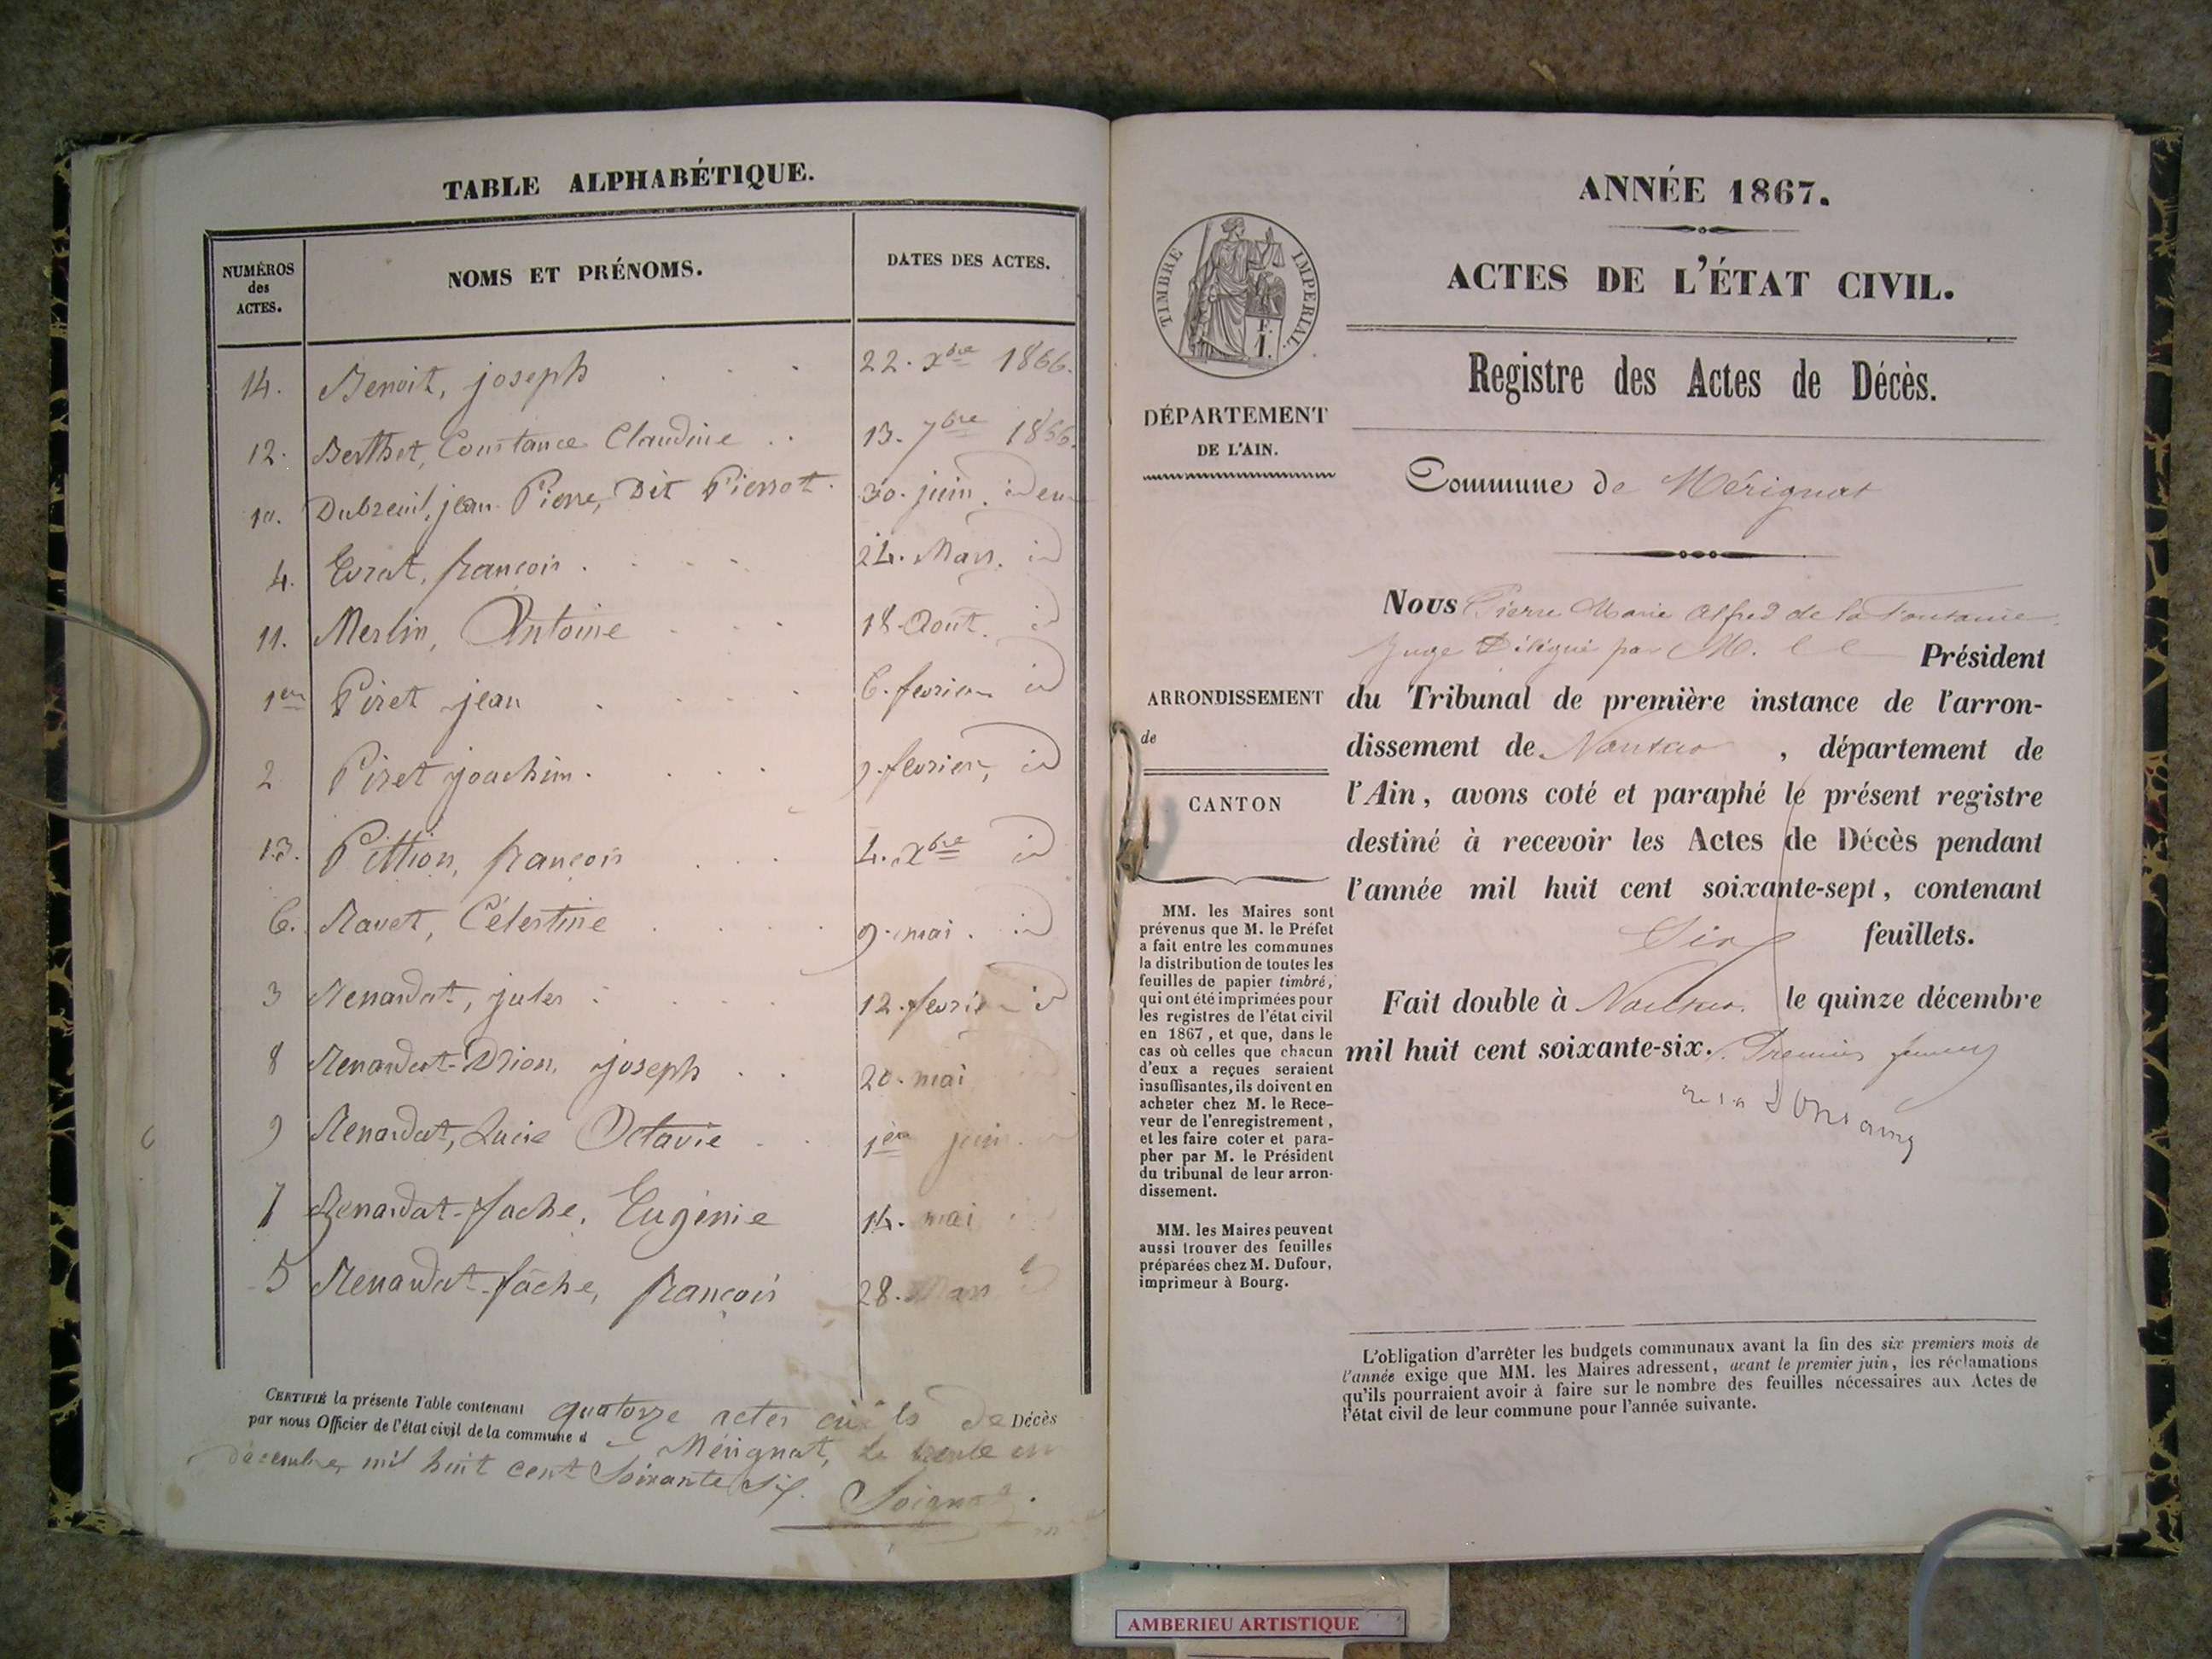 TABLE ALPHABÉTIQUE.
NUMÉROS des ACTES. NOMS ET PRÉNOMS. DATES DES ACTES.
14. Benoit, joseph 22. Xbre 1866.
12. Berthet, Constance Claudine 13. 7bre 1866.
10. Dubreuil, jean Pierre, Dit Pierrot. 30. juin. idem
4. Evrat, françois. 24. Mars. id
11. Merlin, Antoine 18. Aout. id
1er Piret jean 6. fevrier id
2 Piret joachim. 9. fevrier, id
13. Pittion, françois 4. Xbre id
6. Ravet, Célestine 9. mai. id
3 Renardat, jules 12. fevrier id
8 Renardat-Drion, joseph 20. mai
9 Renardat, Lucie Octavie 1er juin
7 Renardat-fache, Eugénie 14. mai
5 Renardat-fâche, françois 28. Mars
CERTIFIÉ la présente Table contenant quatorze actes de Décès
par nous Officier de l'état civil de la commune d Mérignat, le trente un
décembre mil huit cent Soixante Six.
ANNÉE 1867.
ACTES DE L'ÉTAT CIVIL.
Registre des Actes de Décès.
TIMBRE IMPÉRIAL.
DÉPARTEMENT
DE L'AIN.
Commune de Mérignat
ARRONDISSEMENT
de
CANTON
Nous Pierre Marie Alfred de la Fontaine
Juge Délégué par M. le Président
du Tribunal de première instance de l'arron-
dissement de Nantua, département de
l'Ain, avons coté et paraphé le présent registre
destiné à recevoir les Actes de Décès pendant
l'année mil huit cent soixante-sept, contenant
Six feuillets.
Fait double à Nantua. le quinze décembre
mil huit cent soixante-six.
MM. les Maires sont
prévenus que M. le Préfet
a fait entre les communes
la distribution de toutes les
feuilles de papier timbré,
qui ont été imprimées pour
les registres de l'état civil
en 1867, et que, dans le
cas où celles que chacun
d'eux a reçues seraient
insuffisantes, ils doivent en
acheter chez M. le Rece-
veur de l'enregistrement,
et les faire coter et para-
pher par M. le Président
du tribunal de leur arron-
dissement.
MM. les Maires peuvent
aussi trouver des feuilles
préparées chez M. Dufour,
imprimeur à Bourg.
L'obligation d'arrêter les budgets communaux avant la fin des six premiers mois de
l'année exige que MM. les Maires adressent, avant le premier juin, les réclamations
qu'ils pourraient avoir à faire sur le nombre des feuilles nécessaires aux Actes de
l'état civil de leur commune pour l'année suivante.
AMBERIEU ARTISTIQUE